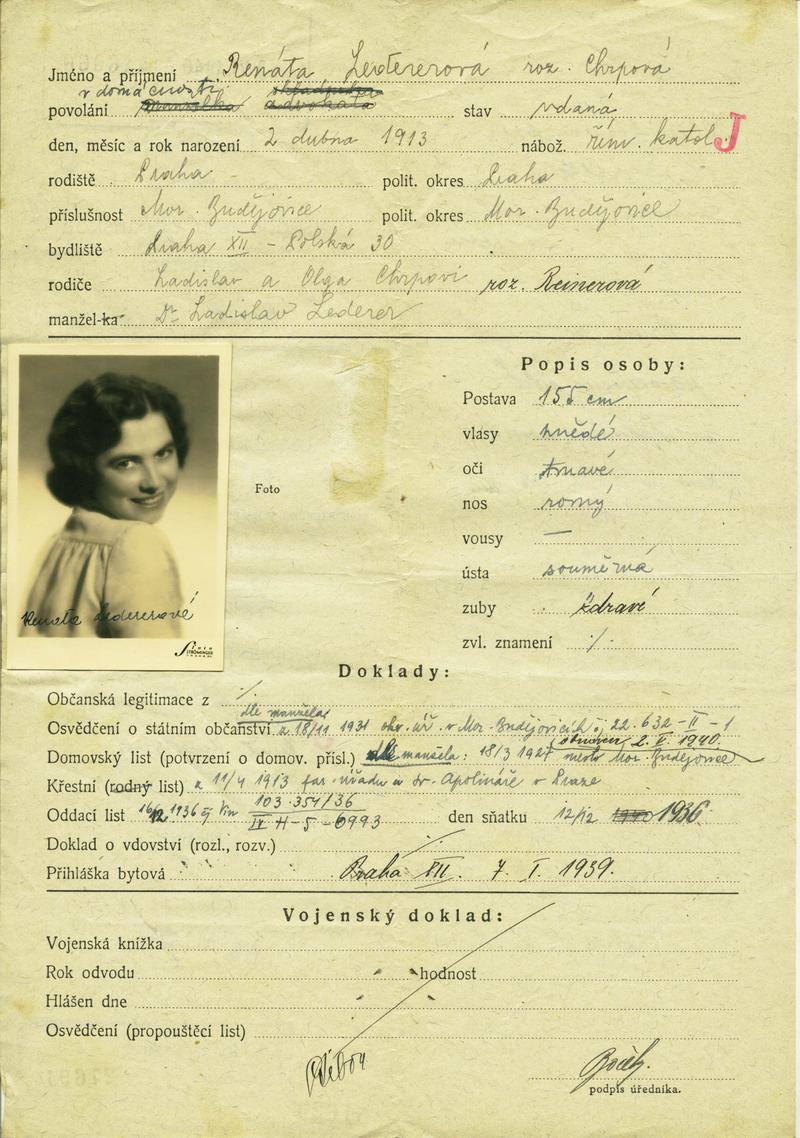 Jméno a příjmení Renáta Ledererová roz. Chrpová
v domácnosti
povolání manželka advokáta stav vdaná
den, měsíc a rok narození 2 dubna 1913 nábož. řím. katol. J
rodiště Praha - polit. okres Praha
příslušnost Mor. Budějovice polit. okres Mor. Budějovice
bydliště Praha XII - Polská 30
rodiče Ladislav a Olga Chrpovi roz. Reinerová
manžel-ka Dr Ladislav Lederer
Popis osoby:
Postava 155 cm
vlasy hnědé
oči tmavé
Foto
nos rovný
vousy —
ústa souměrná
zuby zdravé
zvl. znamení /.
Renata Ledererové
Foto
STRÖMINGER
Doklady:
Občanská legitimace z /
dle manžela
Osvědčení o státním občanství z 18/11 1931 okr. úř. v Mor. Budějovicích č. 22.632-II-1
Domovský list (potvrzení o domov. přísl.) manžela: 18/3 1927 Mor. Budějovice
Křestní (rodný list) z 11/4 1913 far. úřadu u sv. Apolináře v Praze
Oddací list 16/12 1936 103.354/36
IV H-5-6993 den sňatku 12/12 1936
Doklad o vdovství (rozl., rozv.)
Přihláška bytová Praha XII. 7. I. 1939.
Vojenský doklad:
Vojenská knížka
Rok odvodu hodnost
Hlášen dne
Osvědčení (propouštěcí list)
podpis úředníka.